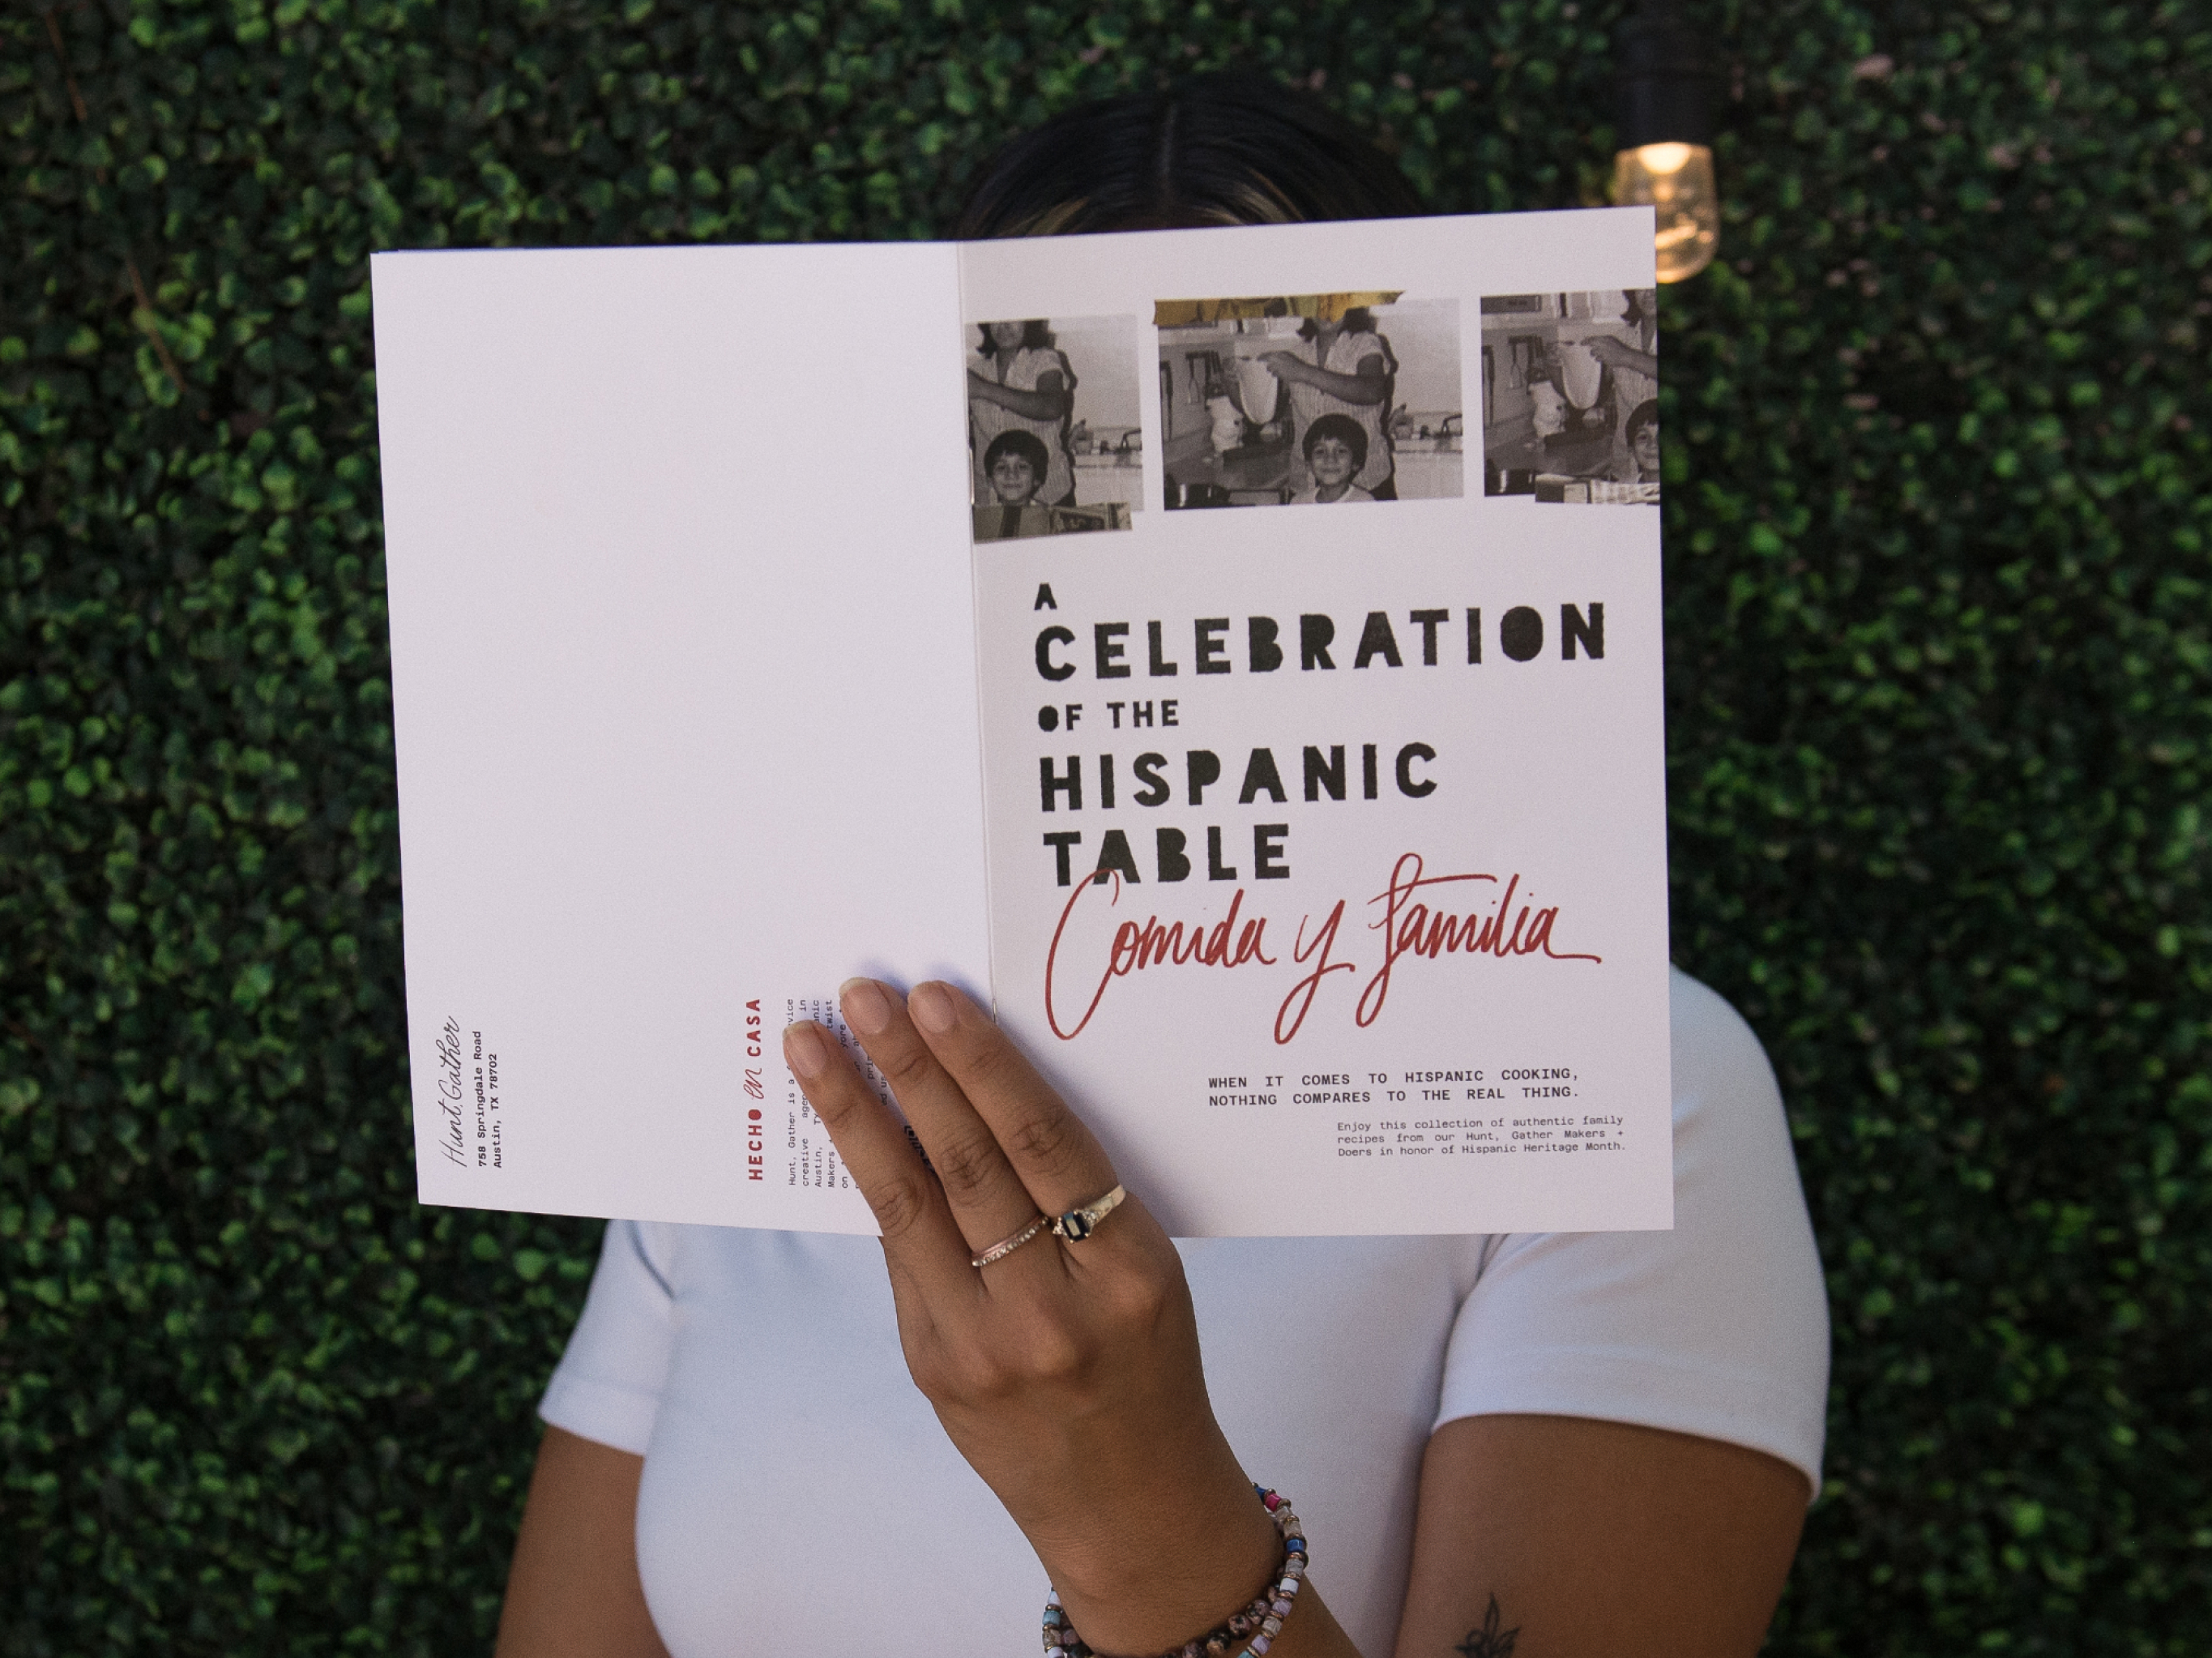 A
CELEBRATION
OF THE
HISPANIC
TABLE
Comida y familia
WHEN IT COMES TO HISPANIC COOKING,
NOTHING COMPARES TO THE REAL THING.
Enjoy this collection of authentic family
recipes from our Hunt, Gather Makers +
Doers in honor of Hispanic Heritage Month.
Hunt, Gather
758 Springdale Road
Austin, TX 78702
HECHO en CASA
Hunt, Gather is a
creative in
Austin,
Makers twist
on